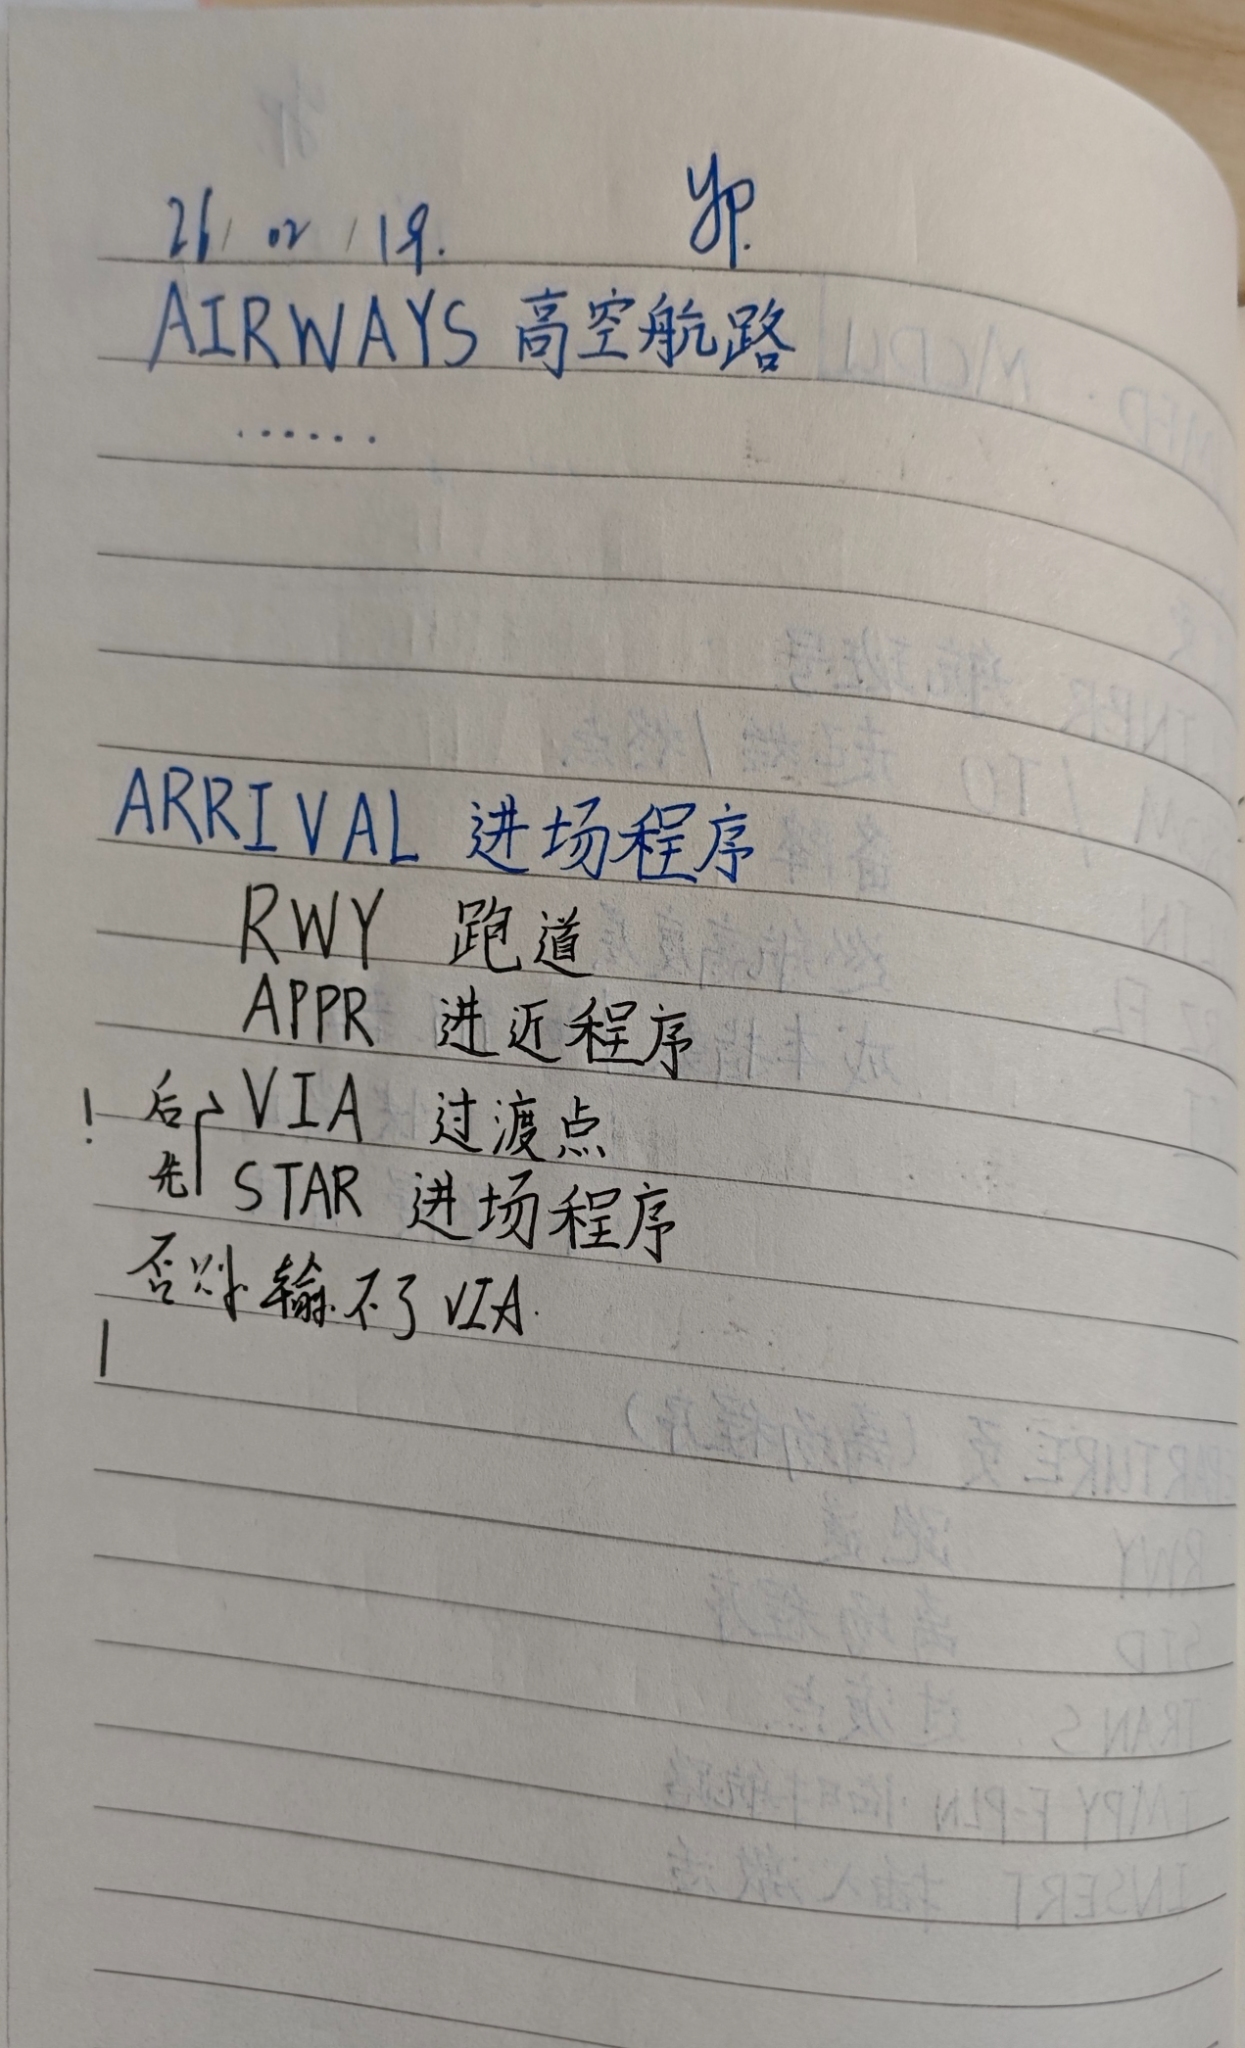 26/02/19.
AIRWAYS 高空航路
......
ARRIVAL 进场程序
RWY 跑道
APPR 进近程序
! 后 VIA 过渡点
先 STAR 进场程序
否则输不了VIA.